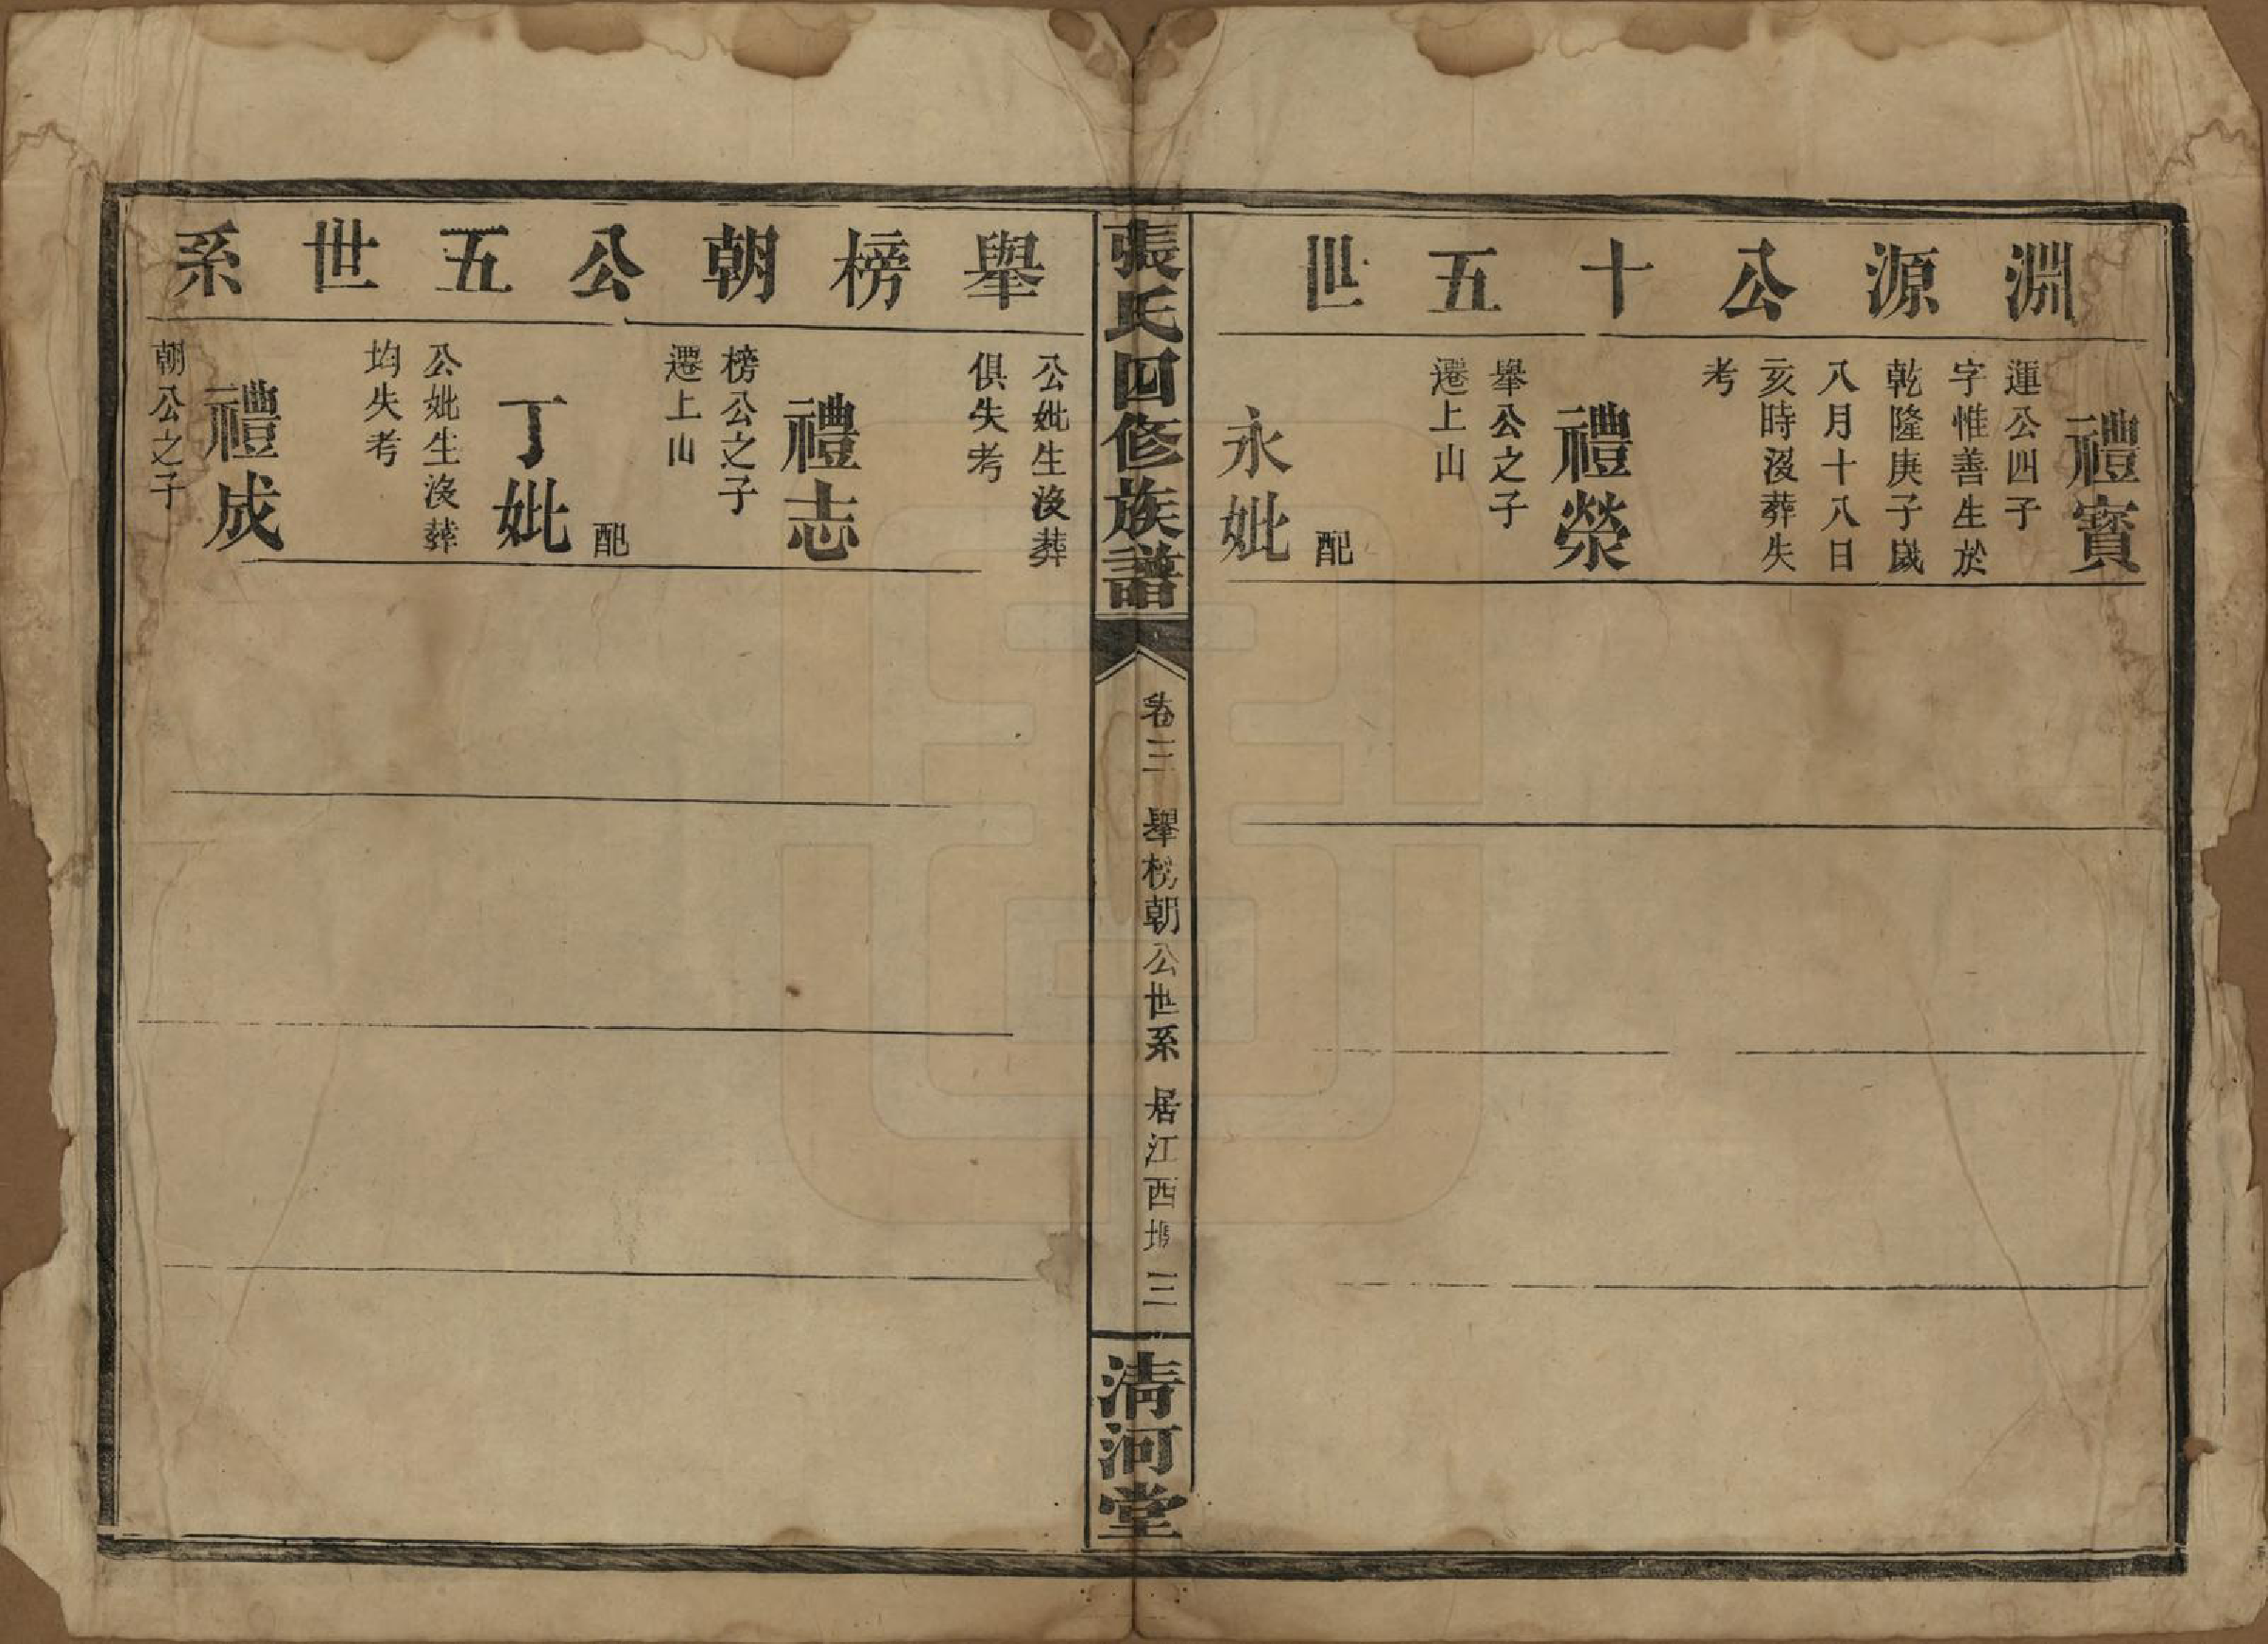 淵源公十五世
禮寳
運公四子
字惟善生於
乾隆庚子歲
八月十八日
亥時沒葬失
考
禮榮
舉公之子
遷上山
配
永妣
張氏四修族譜
卷三 舉榜朝公世系 居江西 三
清河堂
舉榜朝公五世系
公妣生沒葬
俱失考
禮志
榜公之子
遷上山
配
丁妣
公妣生沒葬
均失考
禮成
朝公之子